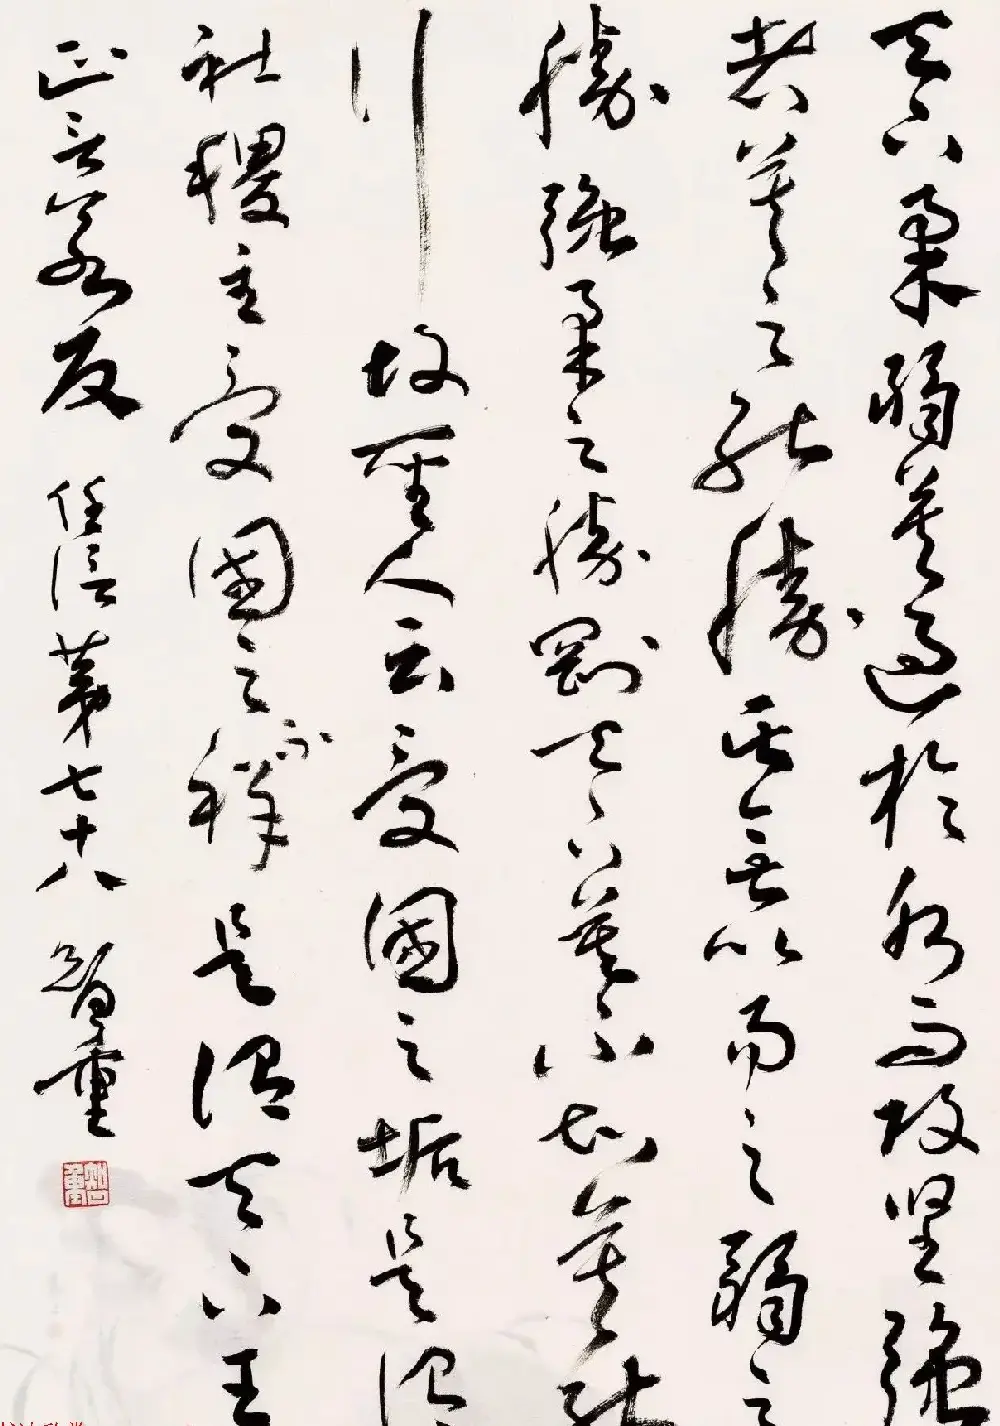 天下柔弱莫過於水而攻堅強
者莫之能勝其無以易之弱之
勝強柔之勝剛天下莫不知莫能
行故聖人云受國之垢是謂
社稷主受國之不祥是謂天下王
正言若反 任信第七十八 智重
智重